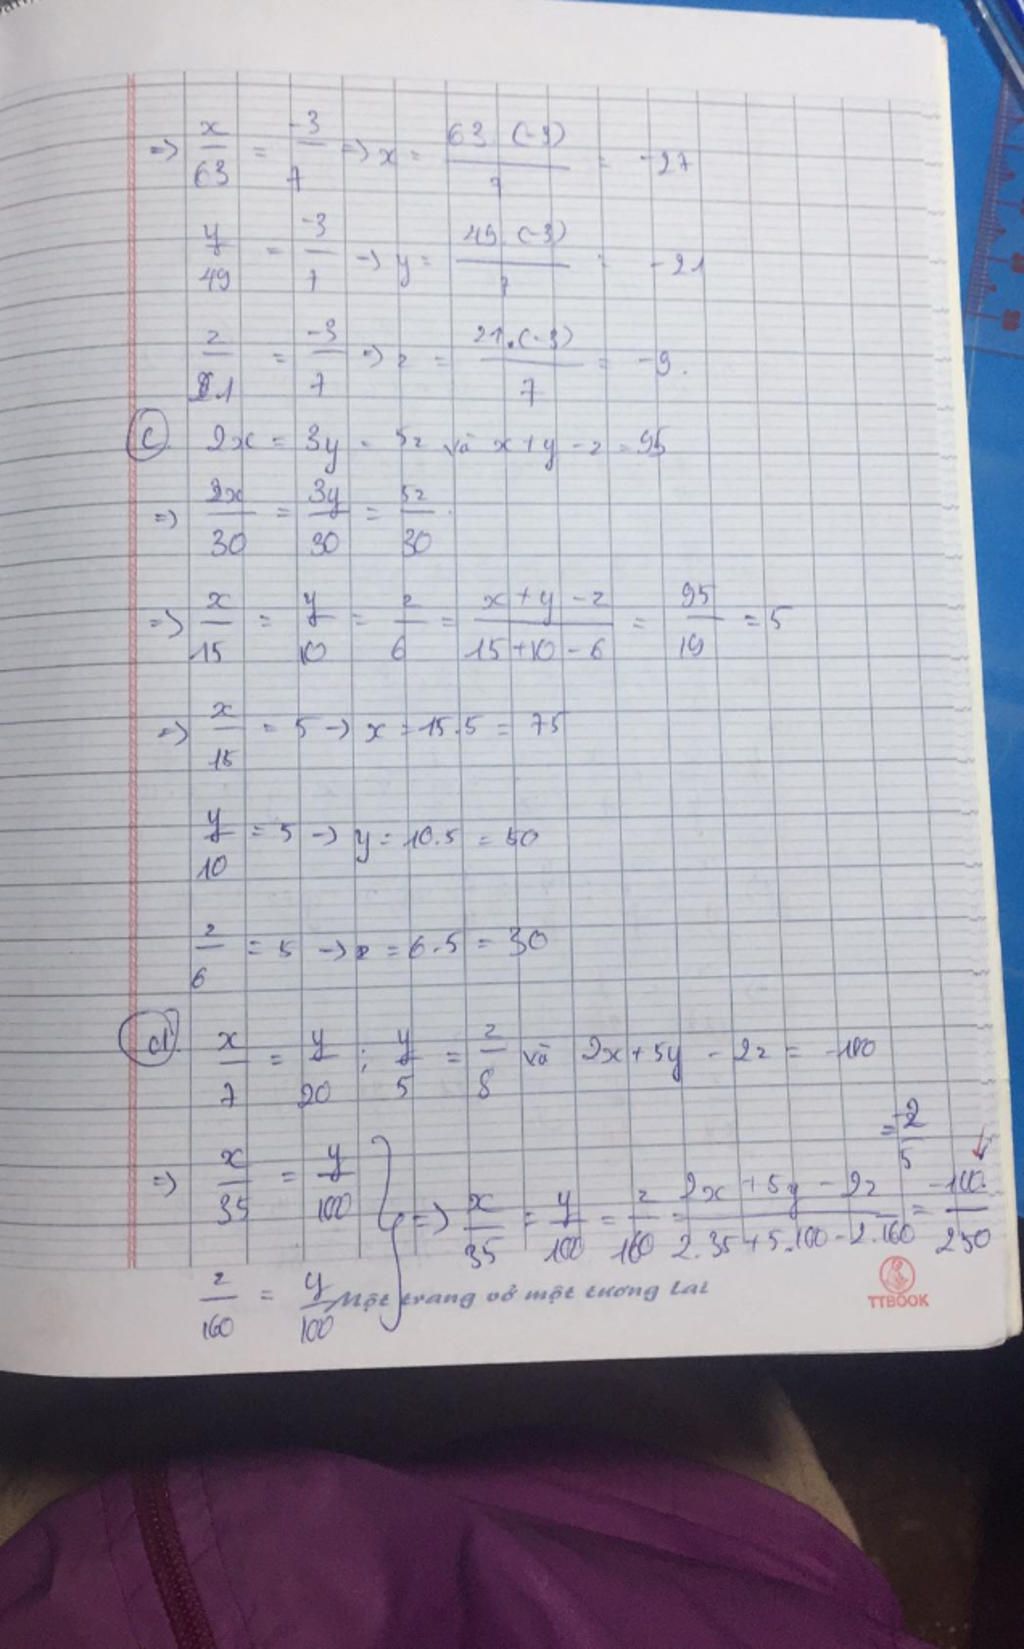 => x/63 = -3/7 => x = 63.(-3)/7 = -27
y/49 = -3/7 -> y = 49.(-3)/7 = -21
z/21 = -3/7 => z = 21.(-3)/7 = -9.
c. 2x = 3y = 5z và x + y - z = 95
=> 2x/30 = 3y/30 = 5z/30
=> x/15 = y/10 = z/6 = x + y - z/15 + 10 - 6 = 95/19 = 5
=> x/15 = 5 -> x = 15.5 = 75
y/10 = 5 -> y = 10.5 = 50
z/6 = 5 -> z = 6.5 = 30
d. x/7 = y/20 ; y/5 = z/8 và 2x + 5y - 2z = -100
=> x/35 = y/100
z/160 = y/100
=> x/35 = y/100 = z/160 = 2x + 5y - 2z/2.35 + 5.100 - 2.160 = -100/250
= -2/5
Một trang vở một tương lai
TTBOOK